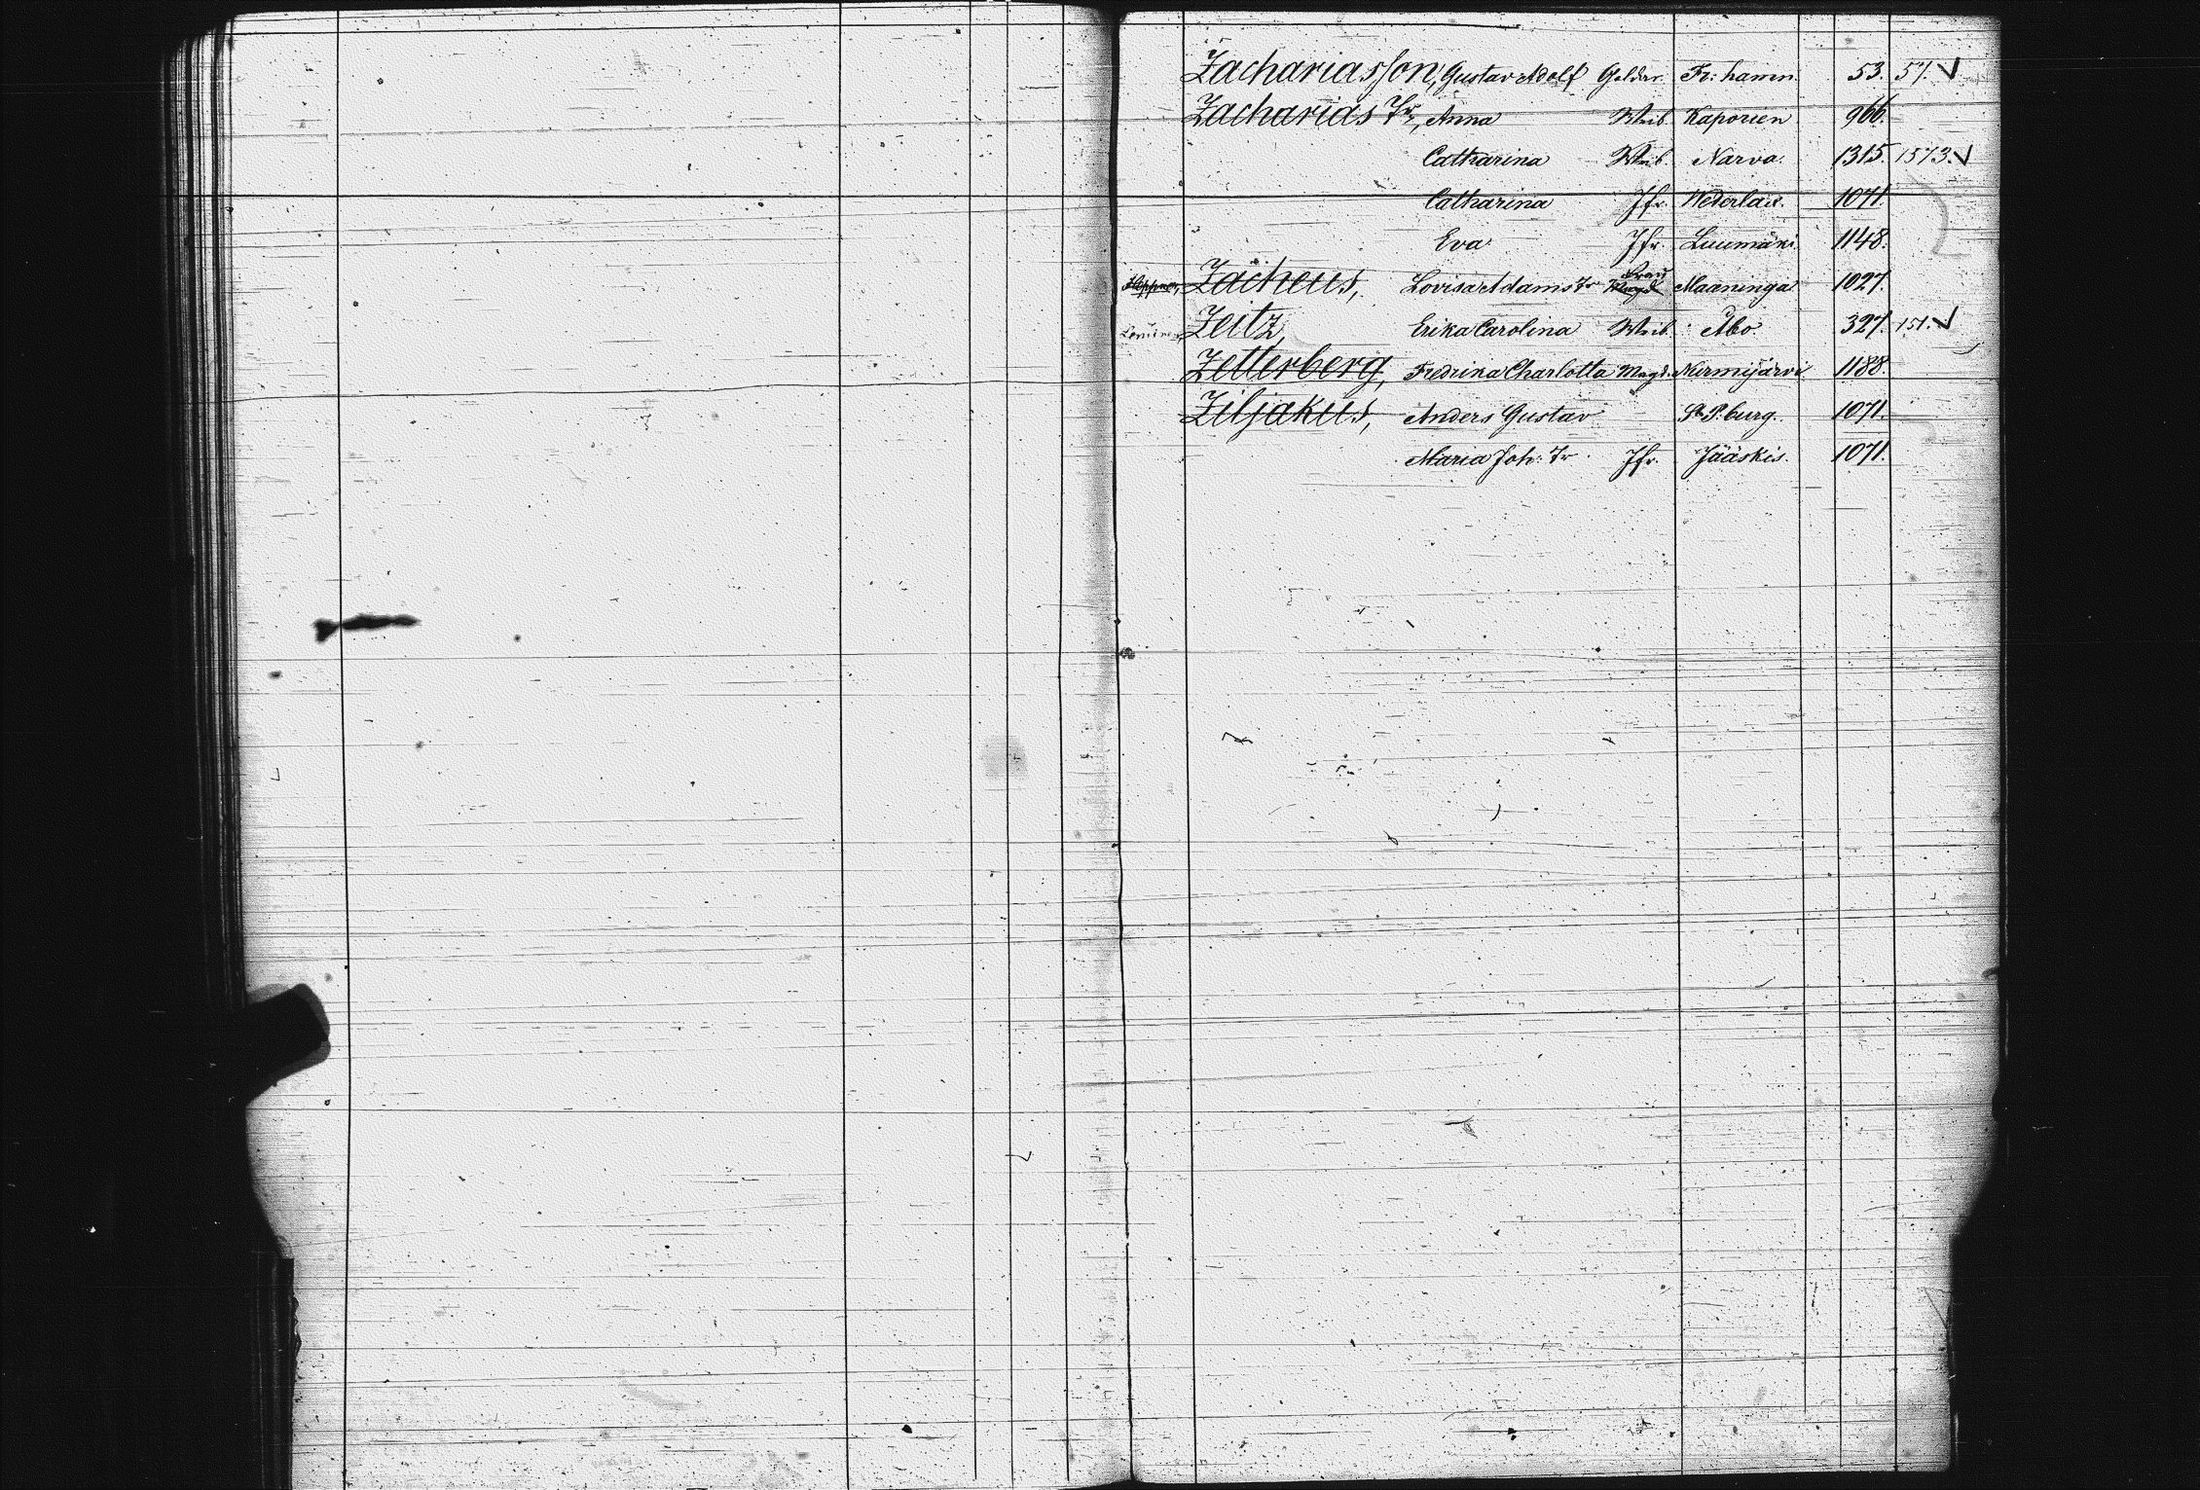 Zachariasson, Gustav Adolf Fr: hamn. 53. 57. ✓
Zacharias Tr, Anna Weib. Kaporien 966.
Catharina Weib. Narva. 1315. 1573. ✓
Catharina Jfr. Wederlax. 1071.
Eva Jfr. Luumäki 1148.
Zacheus, Lovisa Adams Tr Frau Magd Maaninga 1027.
Zeitz, Erika Carolina Weib. Åbo. 327. 151. ✓
Zetterberg, Fredrika Charlotta Magd. Nurmijärvi 1188.
Ziljakus, Anders Gustav St P.burg. 1071.
Maria Joh: Tr Jfr. Jääskis. 1071.